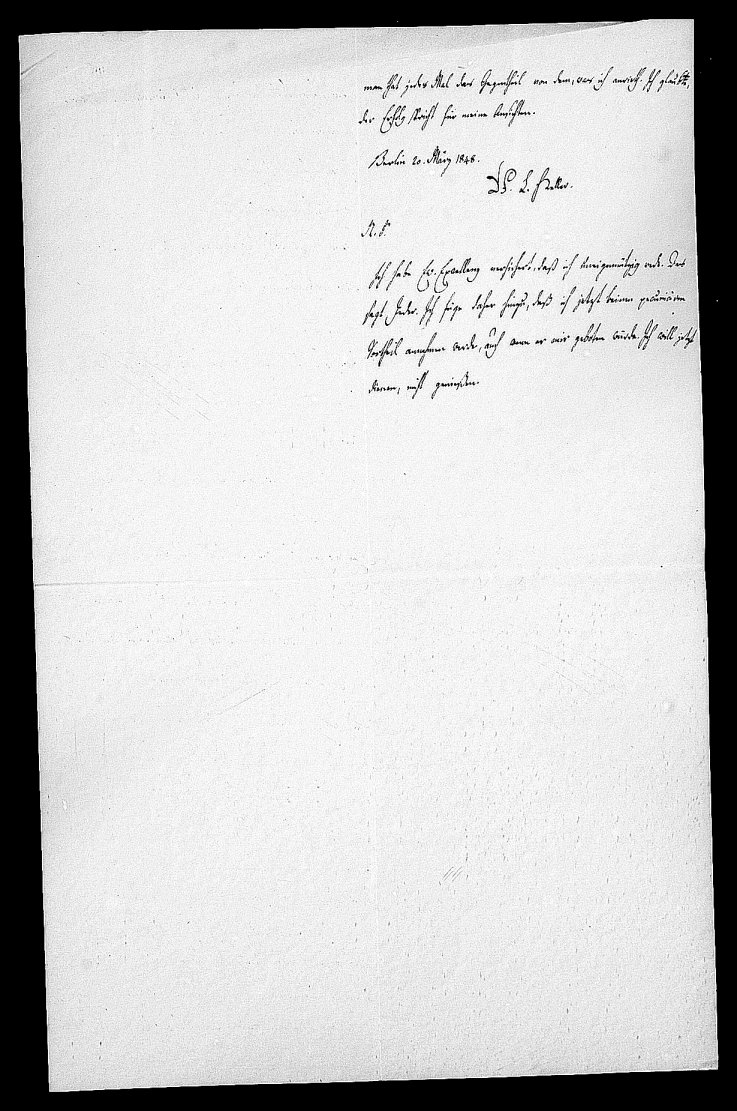 man hat jedes Mal das Gegentheil von dem, was ich anrieth. Ich glaube,
der Erfolg spricht für meine Ansichten.
Berlin 20. März 1848.
Dr. L. Keller.
N. S.
Ich habe Ew. Excellenz versichert, daß ich uneigennützig rede. Das
sagt Jeder. Ich füge daher hinzu, daß ich jetzt keinen pecuniären
Vortheil annehmen werde, auch wenn er mir geboten würde. Ich will jetzt
dienen, nicht genießen.